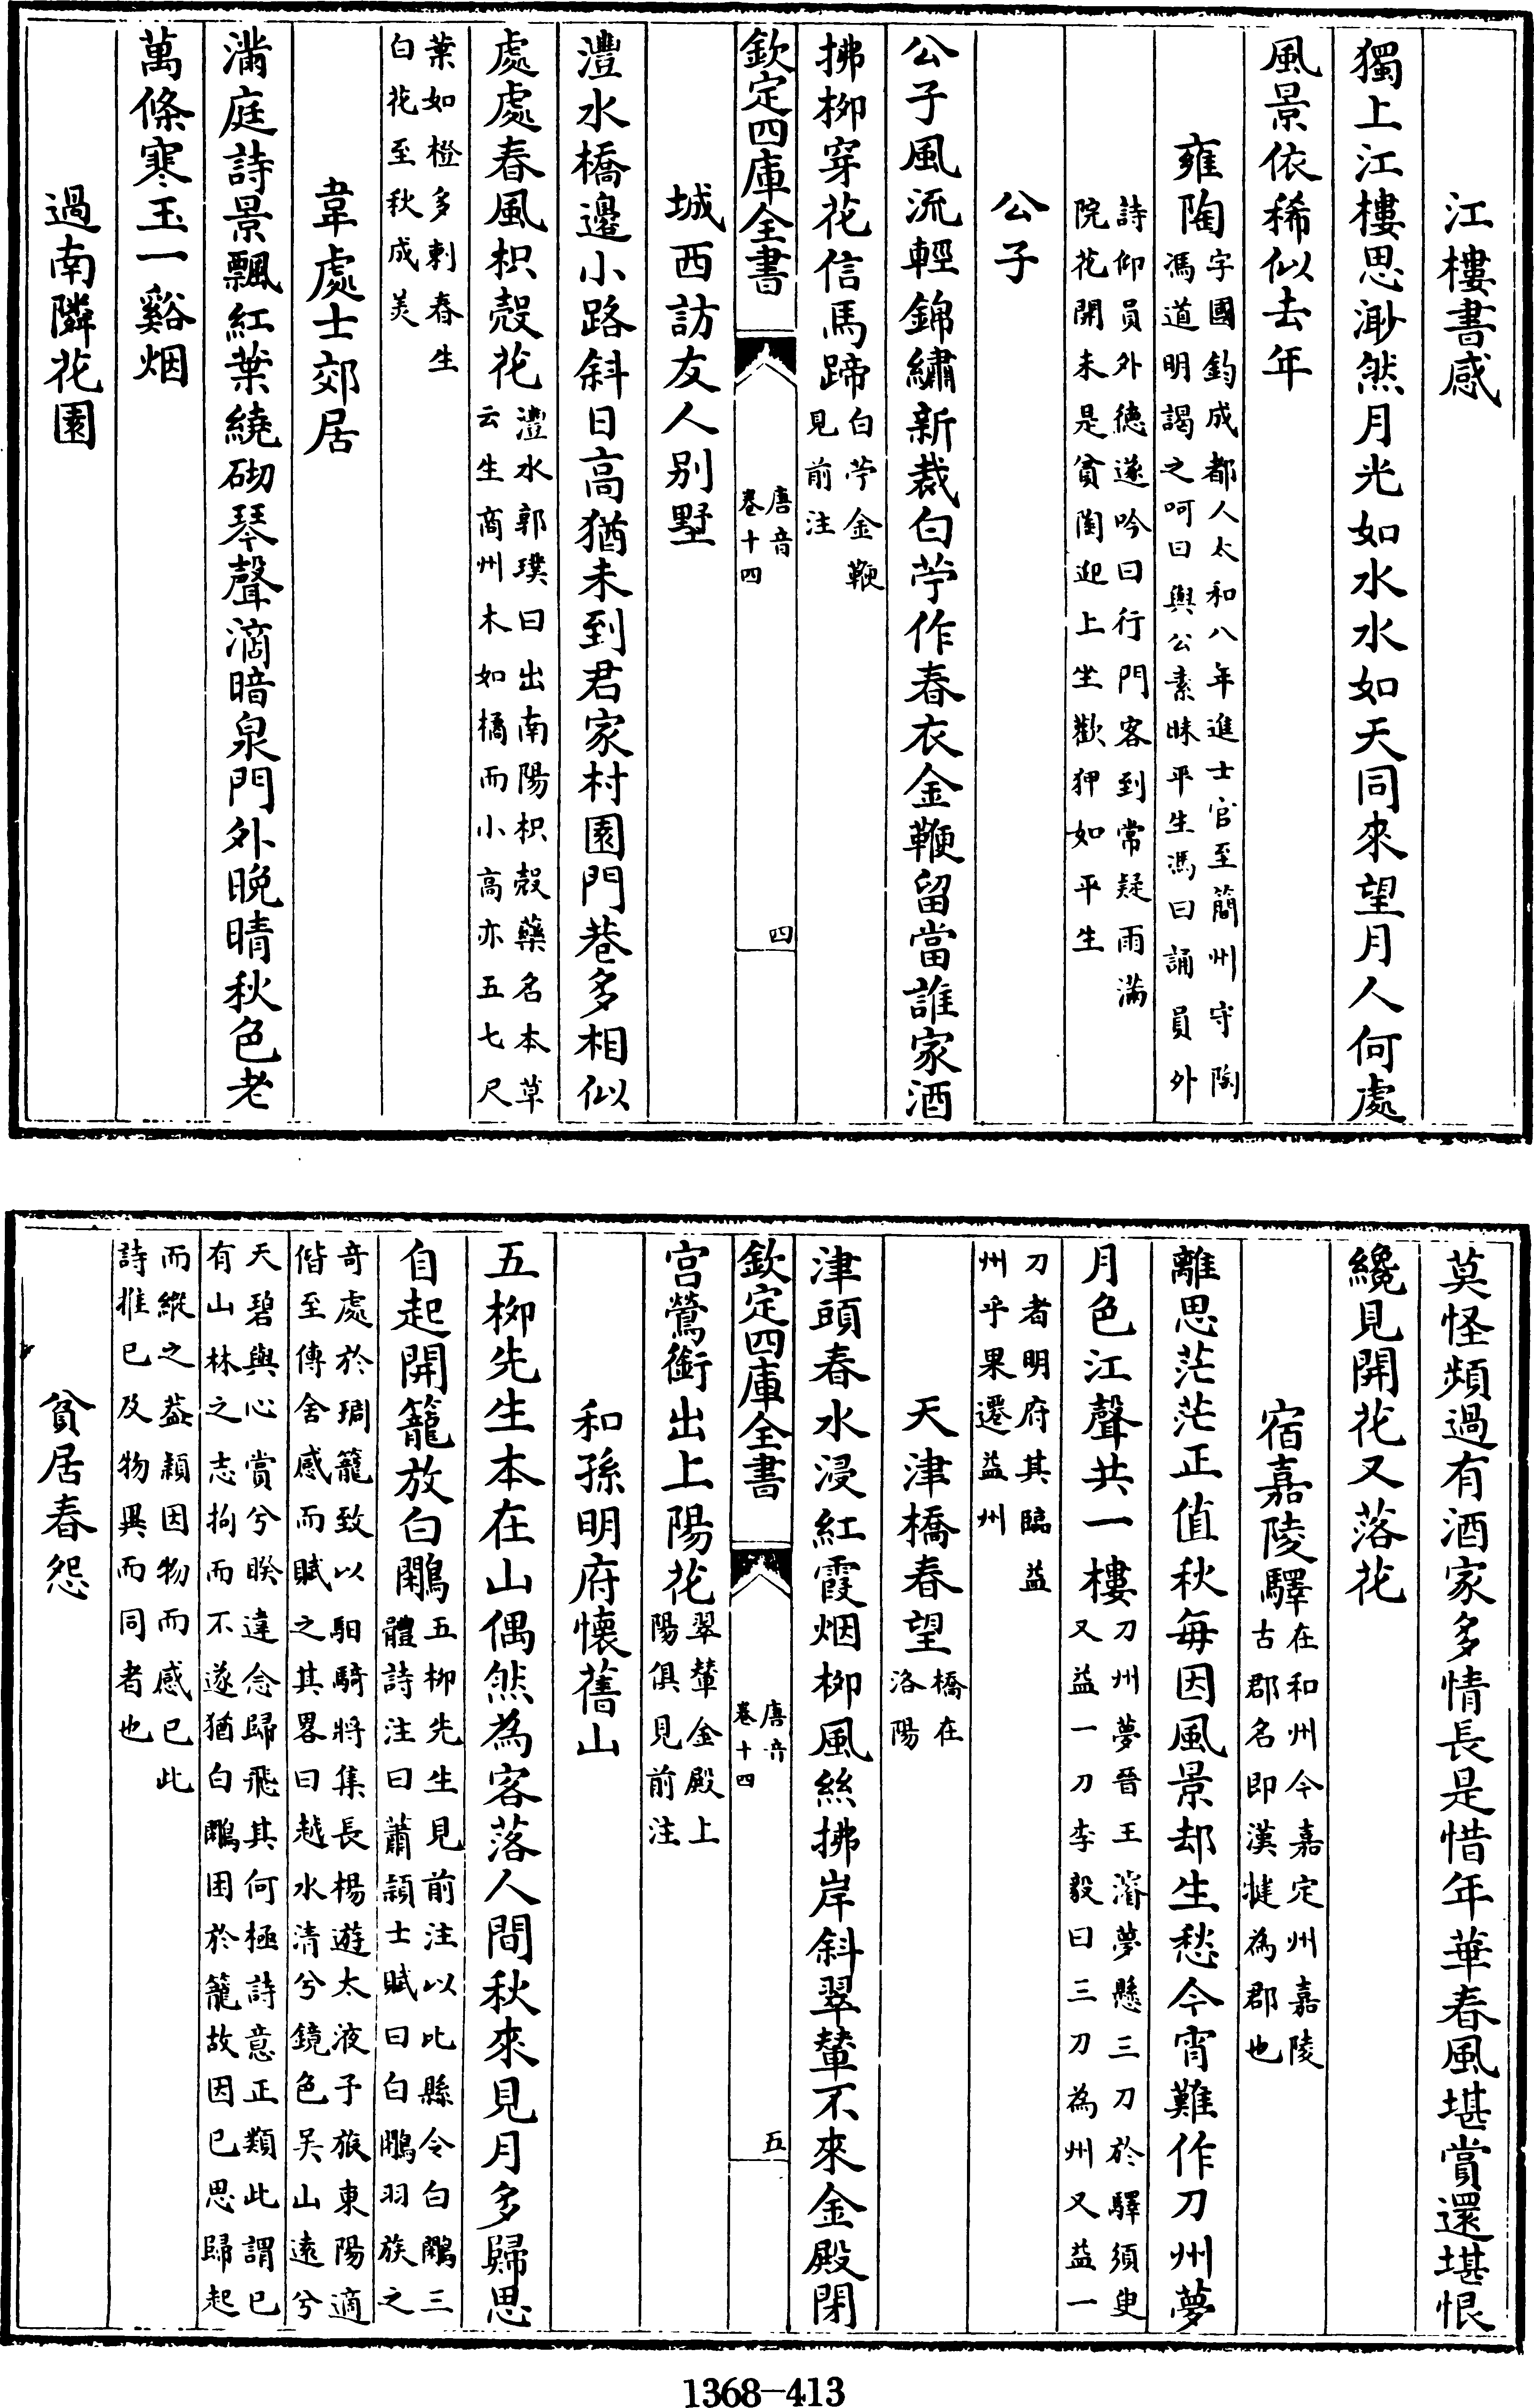 江樓書感
獨上江樓思渺然月光如水水如天同來望月人何處
風景依稀似去年
雍陶字國鈞成都人太和八年進士官至簡州守陶
馮道明謁之呵曰與公素昧平生馮曰誦員外
詩仰員外徳遂吟曰行門客到常疑雨滿
院花開未是貧陶迎上坐歡狎如平生
公子
公子風流輕錦繡新裁白苧作春衣金鞭留當誰家酒
拂柳穿花信馬蹄白苧金鞭
見前注
欽定四庫全書
唐音
卷十四
四
城西訪友人别墅
灃水橋邊小路斜日高猶未到君家村園門巷多相似
處處春風枳殻花灃水郭璞曰出南陽枳殻藥名本草
云生商州木如橘而小高亦五七尺
葉如橙多刺春生
白花至秋成美
韋處士郊居
滿庭詩景飄紅葉繞砌琴聲滴暗泉門外晚晴秋色老
萬條寒玉一谿烟
過南隣花園
莫怪頻過有酒家多情長是惜年華春風堪賞還堪恨
纔見開花又落花
宿嘉陵驛在和州今嘉定州嘉陵
古郡名即漢犍為郡也
離思茫茫正值秋每因風景却生愁今宵難作刀州夢
月色江聲共一樓刀州夢晉王濬夢懸三刀於驛須臾
又益一刀李毅曰三刀為州又益一
刀者明府其臨益
州乎果遷益州
天津橋春望橋在
洛陽
津頭春水浸紅霞烟柳風絲拂岸斜翠輦不來金殿閉
欽定四庫全書
唐音
卷十四
五
宫鶯銜出上陽花翠輦金殿上
陽俱見前注
和孫明府懷舊山
五柳先生本在山偶然為客落人間秋來見月多歸思
自起開籠放白鷴五柳先生見前注以比縣令白鷴三
體詩注曰蕭頴士賦曰白鷴羽族之
奇處於琱籠致以馹騎將集長楊遊太液予旅東陽適
偕至傳舍感而賦之其畧曰越水清兮鏡色吳山遠兮
天碧與心賞兮暌違念歸飛其何極詩意正類此謂已
有山林之志拘而不遂猶白鷴困於籠故因已思歸起
而縱之葢頴因物而感已此
詩推已及物異而同者也
貧居春怨
1368—413